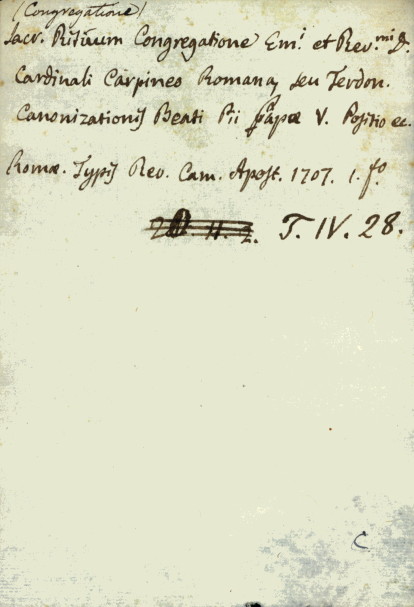 (Congregatione)
Sacr. Rituum Congregatione Em.i et Rev.mi D.
Cardinali Carpineo Romana, seu Terdon.
Canonizationis Beati Pii Papæ V. Positio ec.
Romæ. Typis Rev. Cam. Apost. 1707. 1. fo.
T. IV. 28.
C